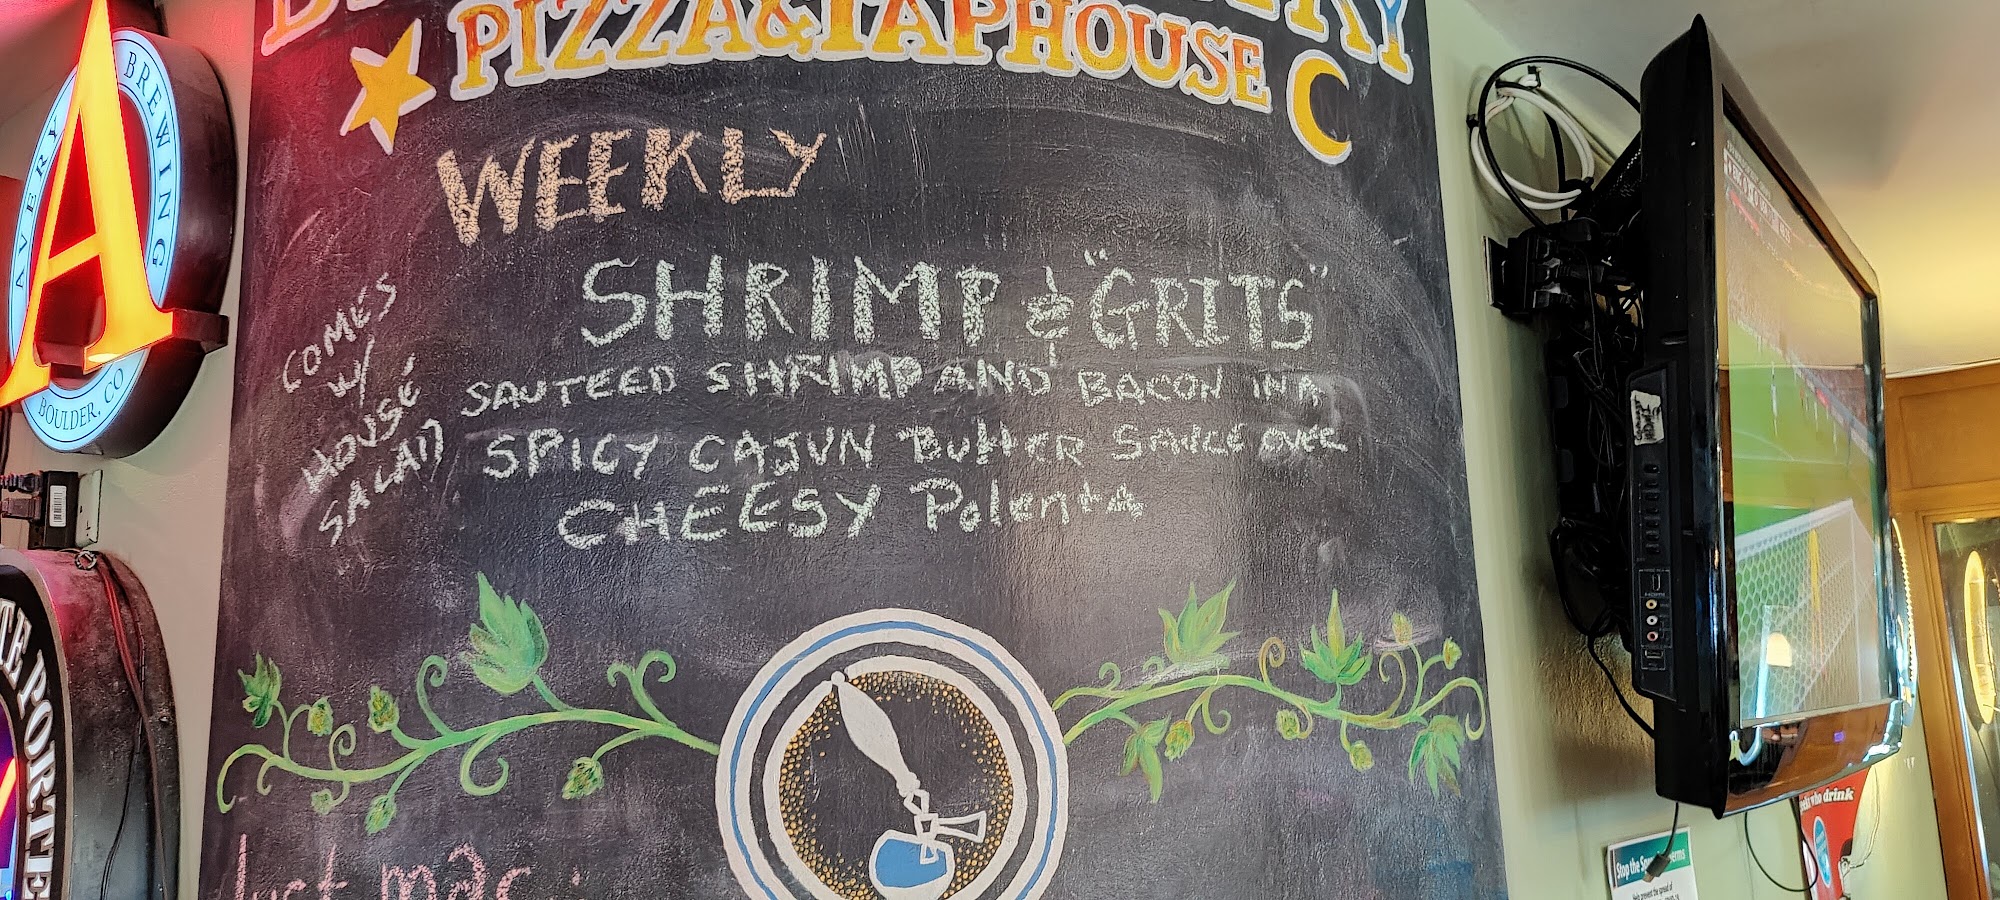 PIZZA & TAPHOUSE
WEEKLY
SHRIMP & "GRITS"
SAUTEED SHRIMP AND BACON IN A
SPICY CAJUN BUTTER SAUCE OVER
CHEESY Polenta
COMES
W/
HOUSE
SALAD
AVERY BREWING
BOULDER, CO
A
PORTE
who drink
Stop the